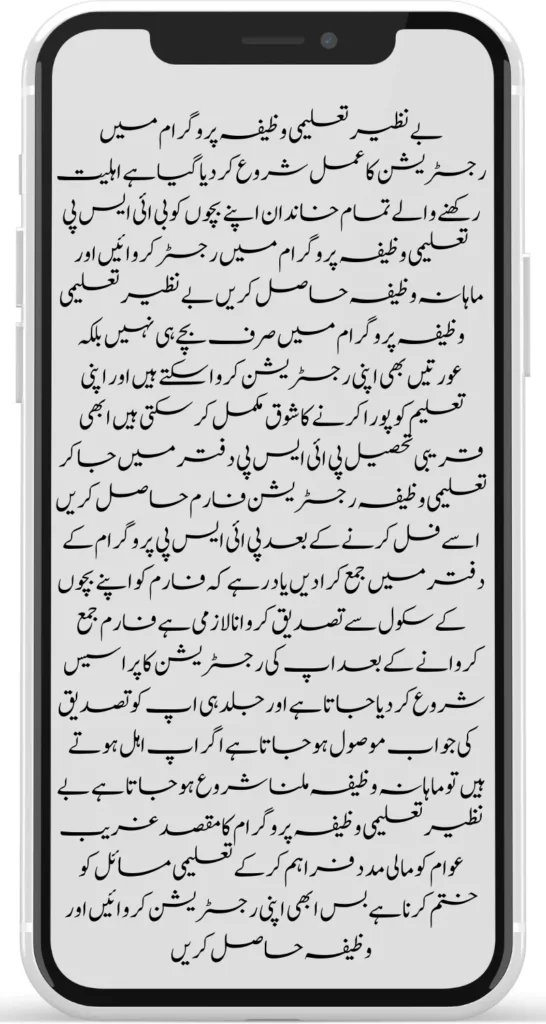 بے نظیر تعلیمی وظیفہ پروگرام میں
رجسٹریشن کا عمل شروع کر دیا گیا ہے اہلیت
رکھنے والے تمام خاندان اپنے بچوں کو بی ائی ایس پی
تعلیمی وظیفہ پروگرام میں رجسٹر کروائیں اور
ماہانہ وظیفہ حاصل کریں بے نظیر تعلیمی
وظیفہ پروگرام میں صرف بچے ہی نہیں بلکہ
عورتیں بھی اپنی رجسٹریشن کروا سکتے ہیں اور اپنی
تعلیم کو پورا کرنے کا شوق مکمل کر سکتی ہیں ابھی
قریبی تحصیل پی ائی ایس پی دفتر میں جا کر
تعلیمی وظیفہ رجسٹریشن فارم حاصل کریں
اسے فل کرنے کے بعد پی ائی ایس پی پروگرام کے
دفتر میں جمع کرا دیں یاد رہے کہ فارم کو اپنے بچوں
کے سکول سے تصدیق کروانا لازمی ہے فارم جمع
کروانے کے بعد اپ کی رجسٹریشن کا پراسیس
شروع کر دیا جاتا ہے اور جلد ہی اپ کو تصدیق
کی جواب موصول ہو جاتا ہے اگر اپ اہل ہوتے
ہیں تو ماہانہ وظیفہ ملنا شروع ہو جاتا ہے بے
نظیر تعلیمی وظیفہ پروگرام کا مقصد غریب
عوام کو مالی مدد فراہم کر کے تعلیمی مسائل کو
ختم کرنا ہے بس ابھی اپنی رجسٹریشن کروائیں اور
وظیفہ حاصل کریں